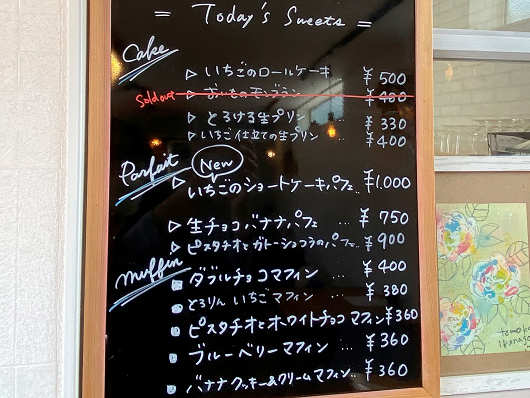 = Today's Sweets =
Cake
▷ いちごのロールケーキ ¥500
Sold out ▷ おいものモンブラン ¥480
▷ とろける生プリン ... ¥330
▷ いちご仕立ての生プリン ... ¥400
Parfait
New
▷ いちごのショートケーキパフェ.. ¥1,000
▷ 生チョコバナナパフェ ... ¥750
▷ ピスタチオとガトーショコラのパフェ.. ¥900
muffin
■ ダブルチョコマフィン ... ¥400
■ とろりんいちごマフィン ... ¥380
■ ピスタチオとホワイトチョコマフィン ¥360
■ ブルーベリーマフィン ... ¥360
■ バナナクッキー&クリームマフィン.. ¥360